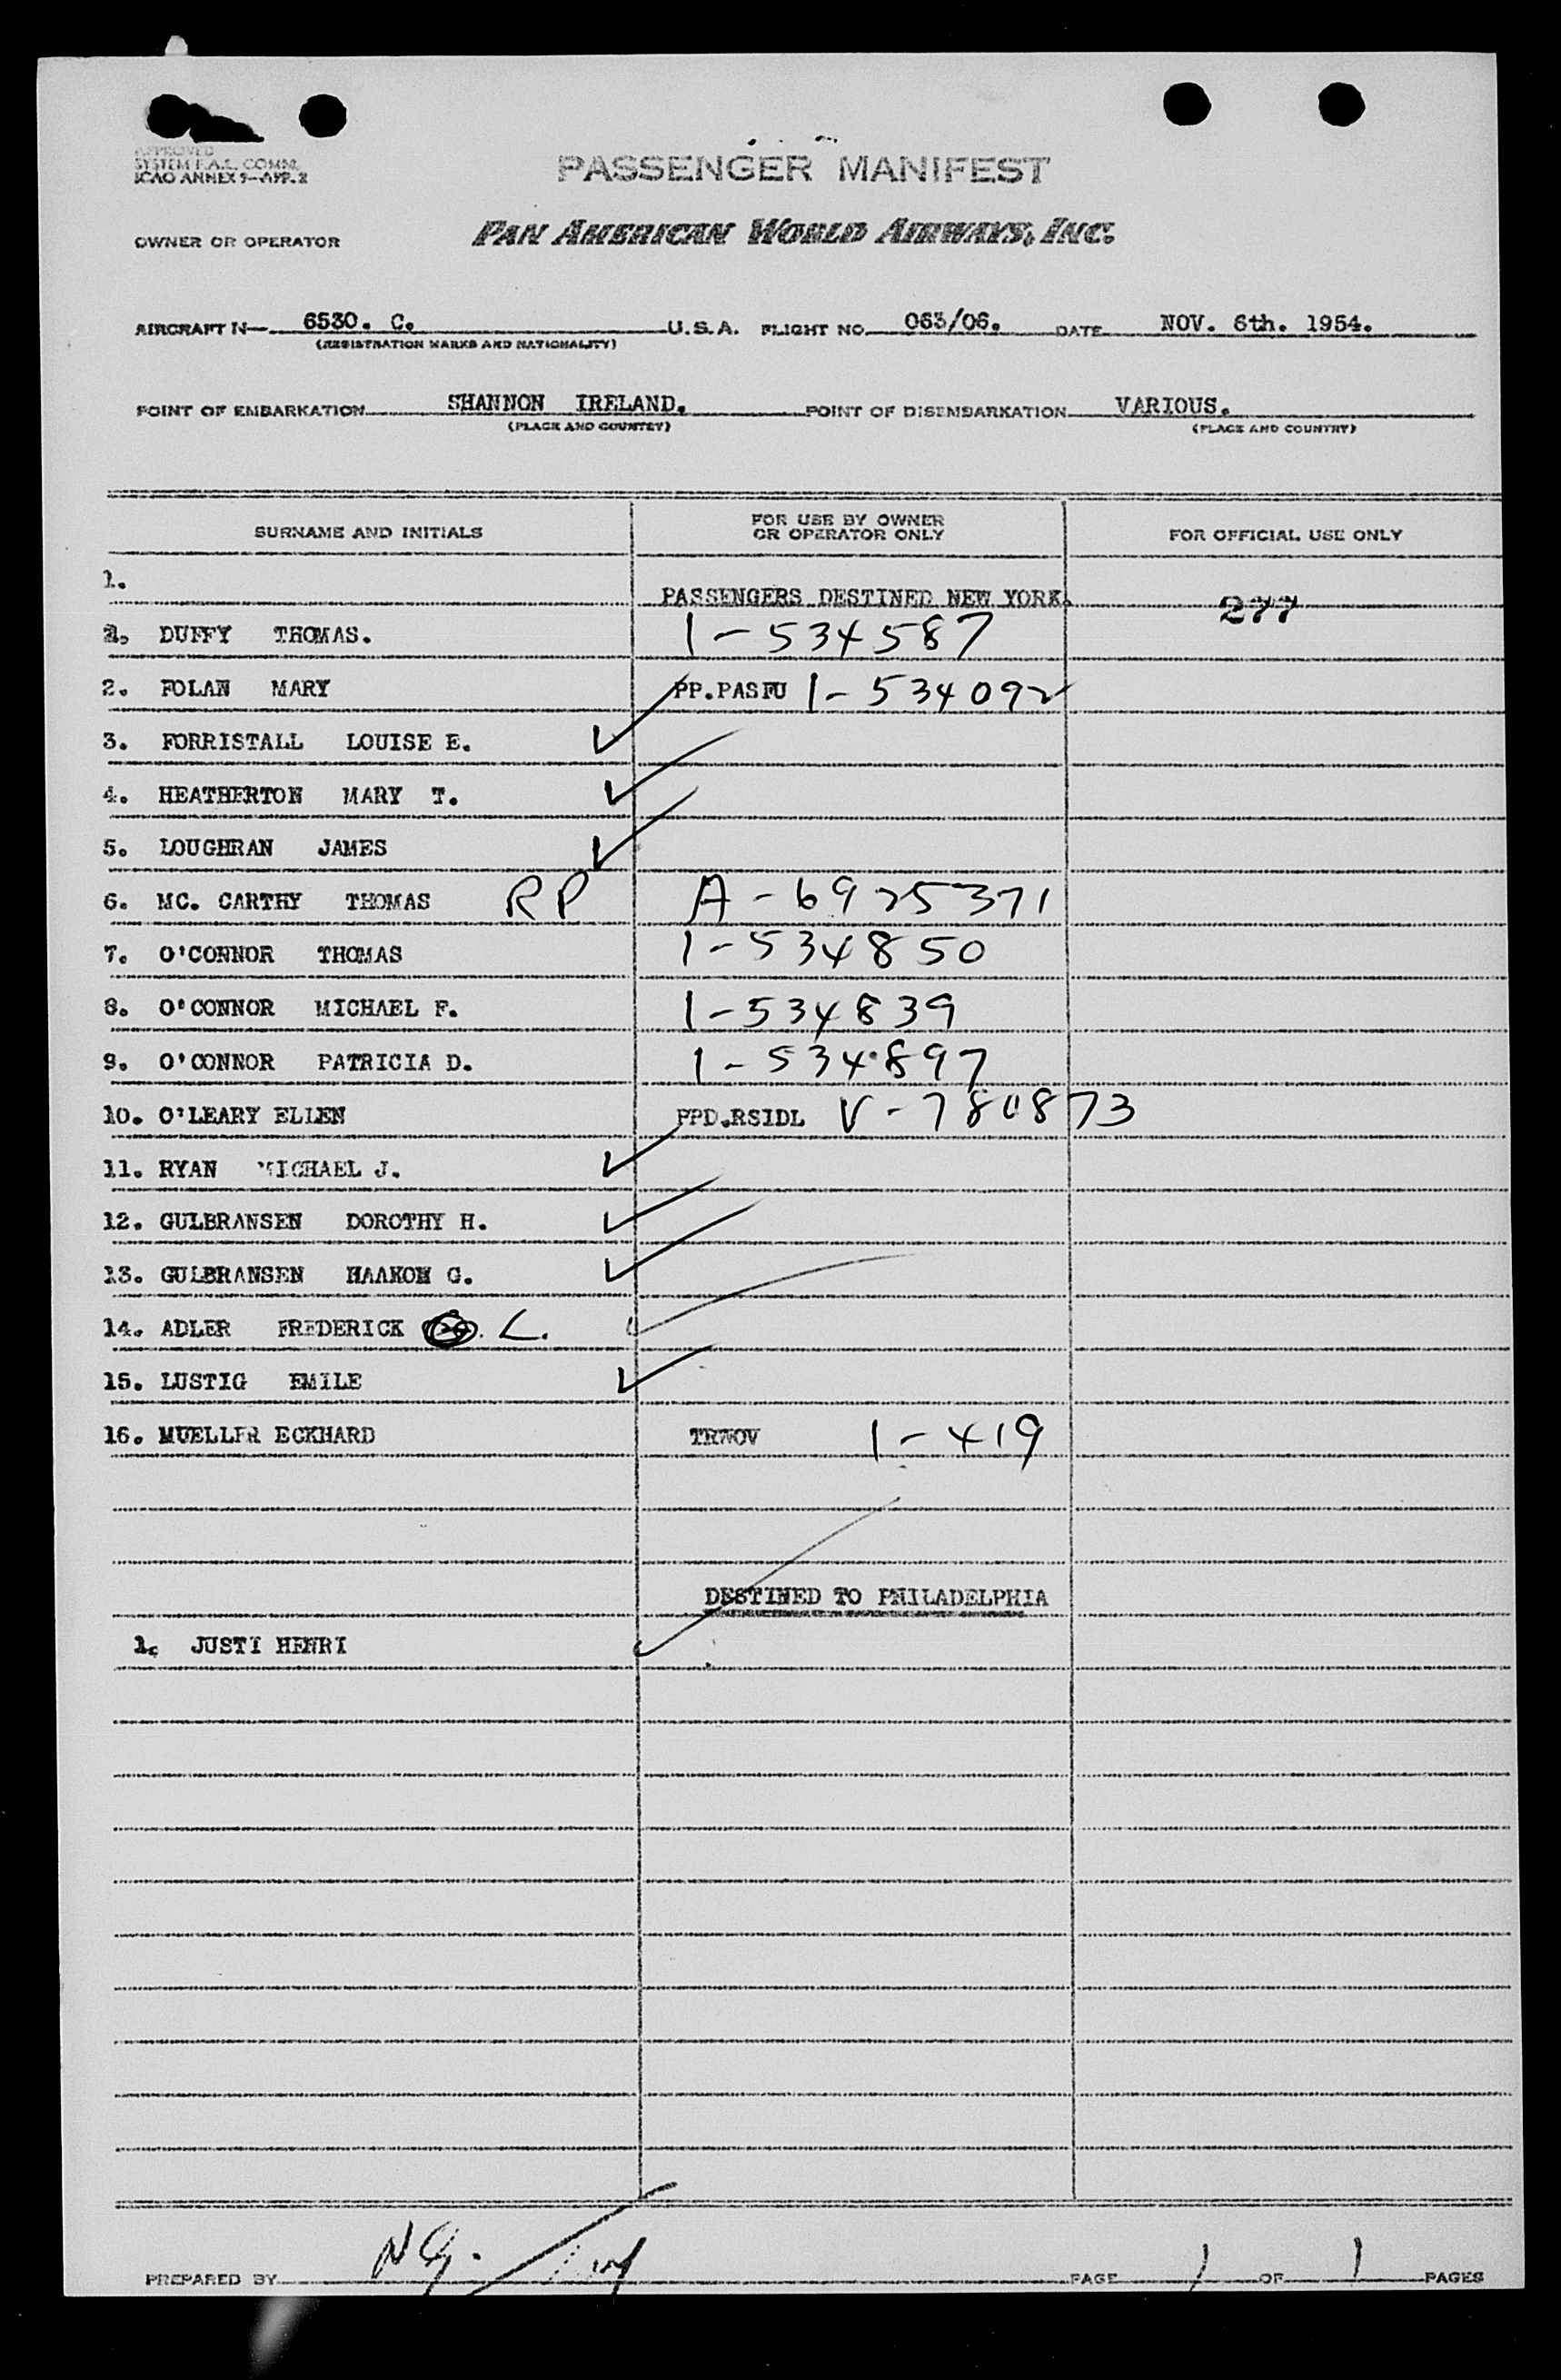 APPROVED
SYSTEM F.A.L. COMM.
ICAO ANNEX 9—APP. 2
PASSENGER MANIFEST
OWNER OR OPERATOR PAN AMERICAN WORLD AIRWAYS, INC.
AIRCRAFT N— 6530. C. U.S.A. FLIGHT NO. 063/06. DATE NOV. 6th. 1954.
(REGISTRATION MARKS AND NATIONALITY)
POINT OF EMBARKATION SHANNON IRELAND. POINT OF DISEMBARKATION VARIOUS.
(PLACE AND COUNTRY) (PLACE AND COUNTRY)
SURNAME AND INITIALS FOR USE BY OWNER OR OPERATOR ONLY FOR OFFICIAL USE ONLY
1. PASSENGERS DESTINED NEW YORK. 277
1. DUFFY THOMAS. 1-534587
2. FOLAN MARY PP.PASFU 1-534092
3. FORRISTALL LOUISE E.
4. HEATHERTON MARY T.
5. LOUGHRAN JAMES
6. MC. CARTHY THOMAS RP A-6925371
7. O'CONNOR THOMAS 1-534850
8. O'CONNOR MICHAEL F. 1-534839
9. O'CONNOR PATRICIA D. 1-534897
10. O'LEARY ELLEN PPD.RSIDL V-780873
11. RYAN MICHAEL J.
12. GULBRANSEN DOROTHY H.
13. GULBRANSEN HAAKON G.
14. ADLER FREDERICK L.
15. LUSTIG EMILE
16. MUELLER ECKHARD TRWOV 1-419
DESTINED TO PHILADELPHIA
1. JUSTI HENRI
PREPARED BY NG. PAGE 1 OF 1 PAGES